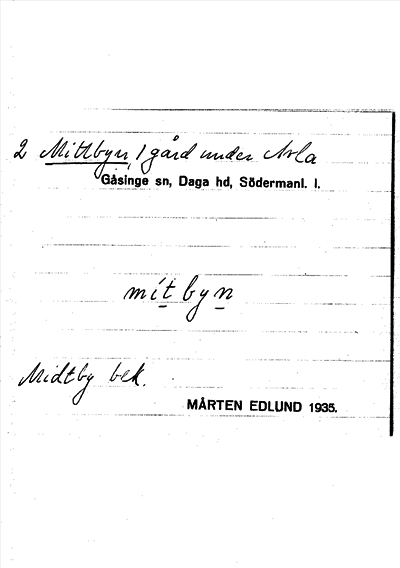 2 Mittbyn, 1 gård under Arla
Gåsinge sn, Daga hd, Södermanl. l.
mítbyn
Midtby bek.
MÅRTEN EDLUND 1935.